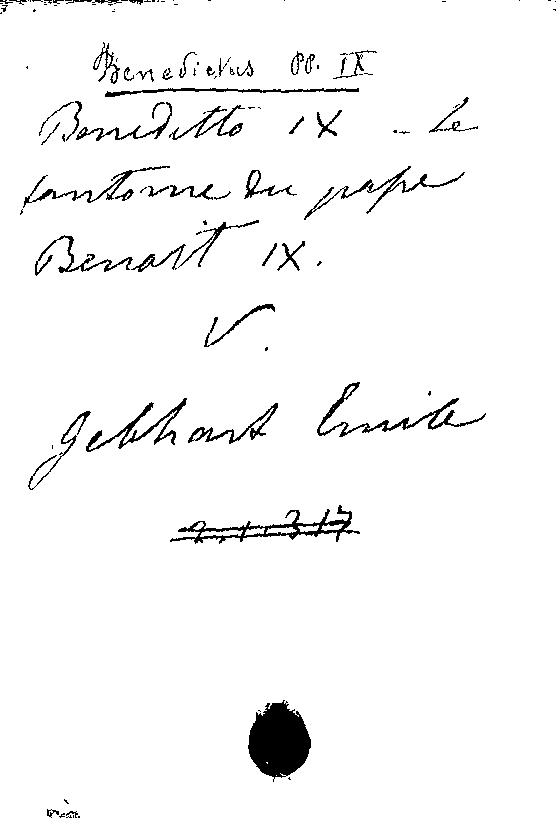 Benedictus PP. IX
Benedetto IX - Le
fantome du pape
Benoît IX.
V.
Gebhart Emile
2.1.317